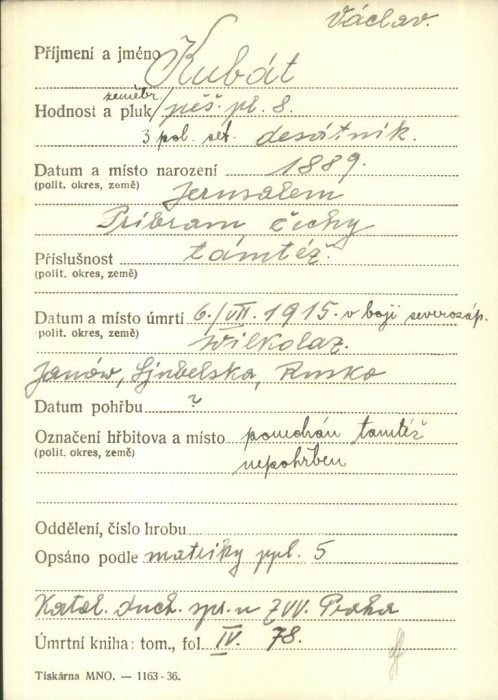 Václav.
Příjmení a jméno Kubát
Hodnost a pluk zeměbr. pěš. pl. 8.
3 pol. set. desátník.
Datum a místo narození 1889.
(polit. okres, země) Jerusalem
Příbram Čechy
Příslušnost tamtéž.
(polit. okres, země)
Datum a místo úmrtí 6./VII. 1915. v boji severozáp.
polit. okres, země) Wilkolaz.
Janów, Ljubelska, Rusko
Datum pohřbu ?
Označení hřbitova a místo ponechán tamtéž
(polit. okres, země) nepohřben
Oddělení, číslo hrobu
Opsáno podle matriky ppl. 5
Katol. duch. spr. u ZVV. Praha
Úmrtní kniha: tom., fol. IV. 78.
Tiskárna MNO. — 1163-36.